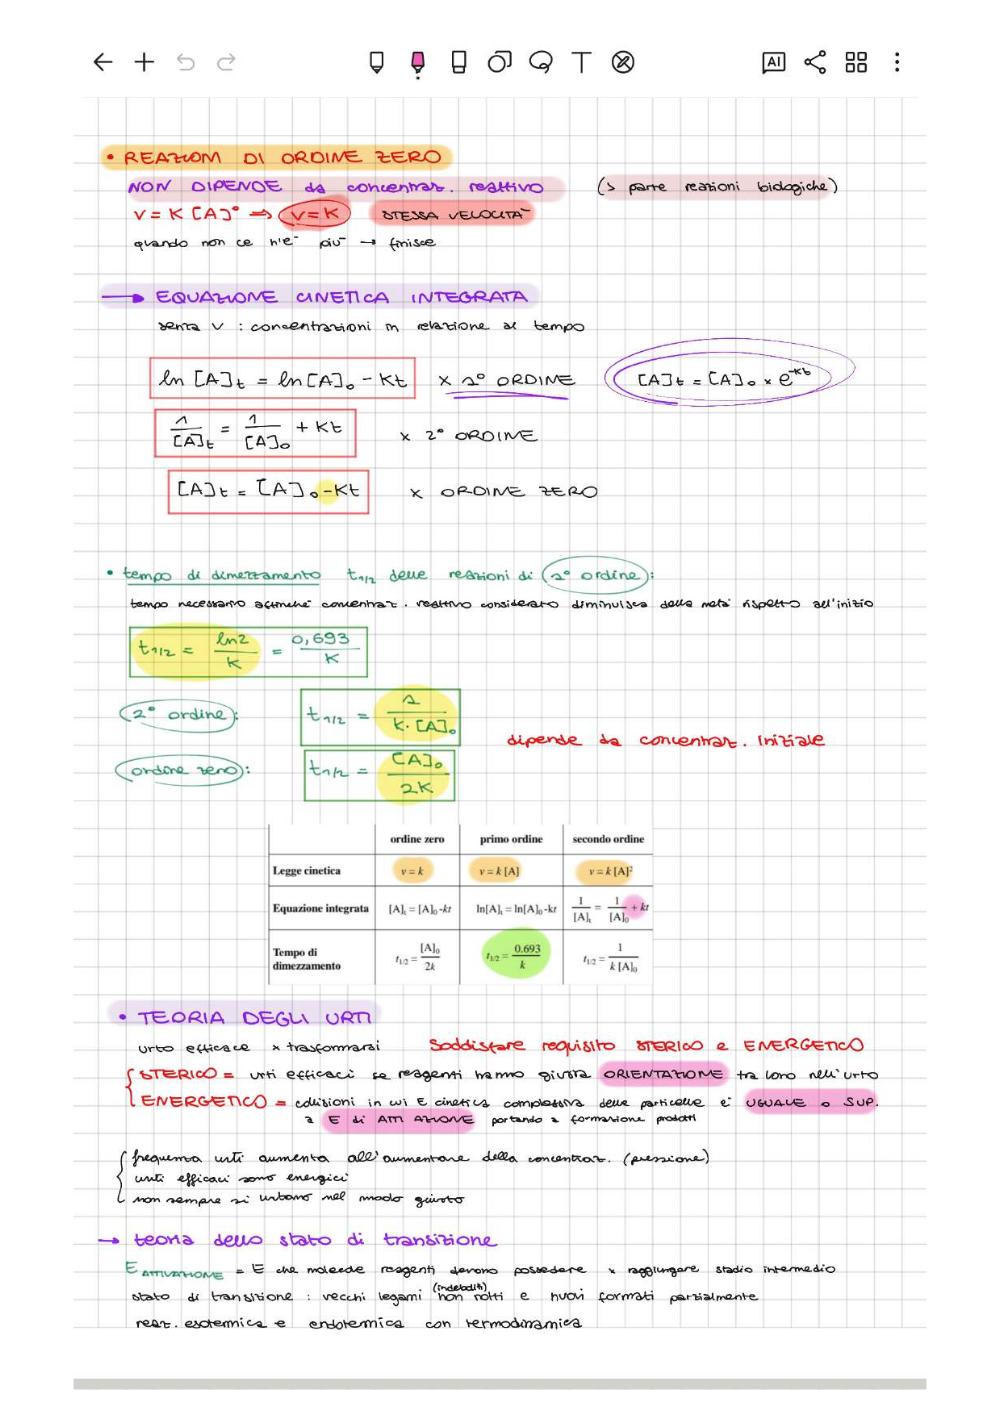 AI
• REAZIONI DI ORDINE ZERO
NON DIPENDE da concentraz. reattivo (> parte reazioni biologiche)
V = K [A]° ⇒ V = K STESSA VELOCITA'
quando non ce n'e' piu' → finisce
→ EQUAZIONE CINETICA INTEGRATA
senza V : concentrazioni in relazione al tempo
ln [A]t = ln [A]₀ - Kt x 1° ORDINE [A]t = [A]₀ x e^-Kt
1/[A]t = 1/[A]₀ + Kt x 2° ORDINE
[A]t = [A]₀ - Kt x ORDINE ZERO
• tempo di dimezzamento t1/2 delle reazioni di 1° ordine:
tempo necessario affinche' concentraz. reattivo considerato diminuisca della meta' rispetto all'inizio
t1/2 = ln2/K = 0,693/K
2° ordine: t1/2 = 1/K·[A]₀
dipende da concentraz. iniziale
ordine zero: t1/2 = [A]₀/2K
ordine zero primo ordine secondo ordine
Legge cinetica v = k v = k [A] v = k [A]²
Equazione integrata [A]t = [A]₀ -kt ln[A]t = ln[A]₀ -kt 1/[A]t = 1/[A]₀ + kt
Tempo di dimezzamento t1/2 = [A]₀/2k t1/2 = 0.693/k t1/2 = 1/k [A]₀
• TEORIA DEGLI URTI
urto efficace x trasformarsi Soddisfare requisito STERICO e ENERGETICO
STERICO = urti efficaci se reagenti hanno giusta ORIENTAZIONE tra loro nell'urto
ENERGETICO = collisioni in cui E cinetica complessiva delle particelle e' UGUALE o SUP.
a E di ATTIVAZIONE portando a formazione prodotti
frequenza urti aumenta all'aumentare della concentraz. (pressione)
urti efficaci sono energici
non sempre si urtano nel modo giusto
→ teoria dello stato di transizione
E ATTIVAZIONE = E che molecole reagenti devono possedere x raggiungere stadio intermedio
(indeboliti)
stato di transizione : vecchi legami non rotti e nuovi formati parzialmente
reaz. esotermica e endotermica con termodinamica